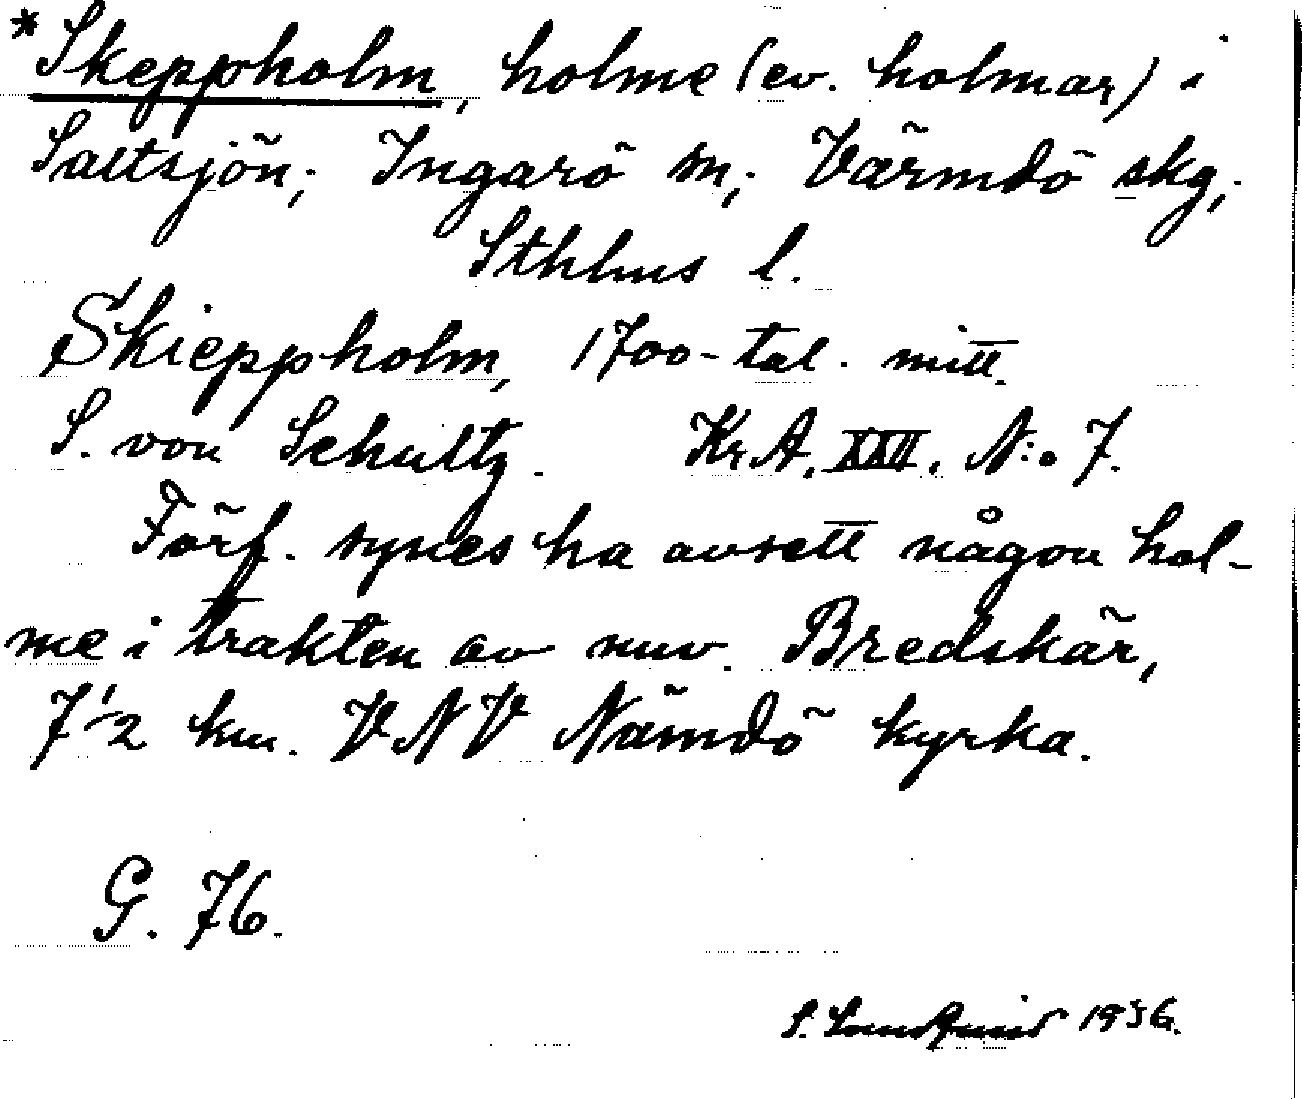 *Skeppholm, holme (ev. holmar) i
Saltsjön; Ingarö sn; Värmdö skg;
Sthlms l.
Skieppholm, 1700-tal. mitt.
S. von Schultz. Kr.A. XXII. N:o 7.
Förf. synes ha avsett någon hol-
me i trakten av nuv. Bredskär,
7 1/2 km. VNV Nämdö kyrka.
G. 76.
S. Lundquist 1936.